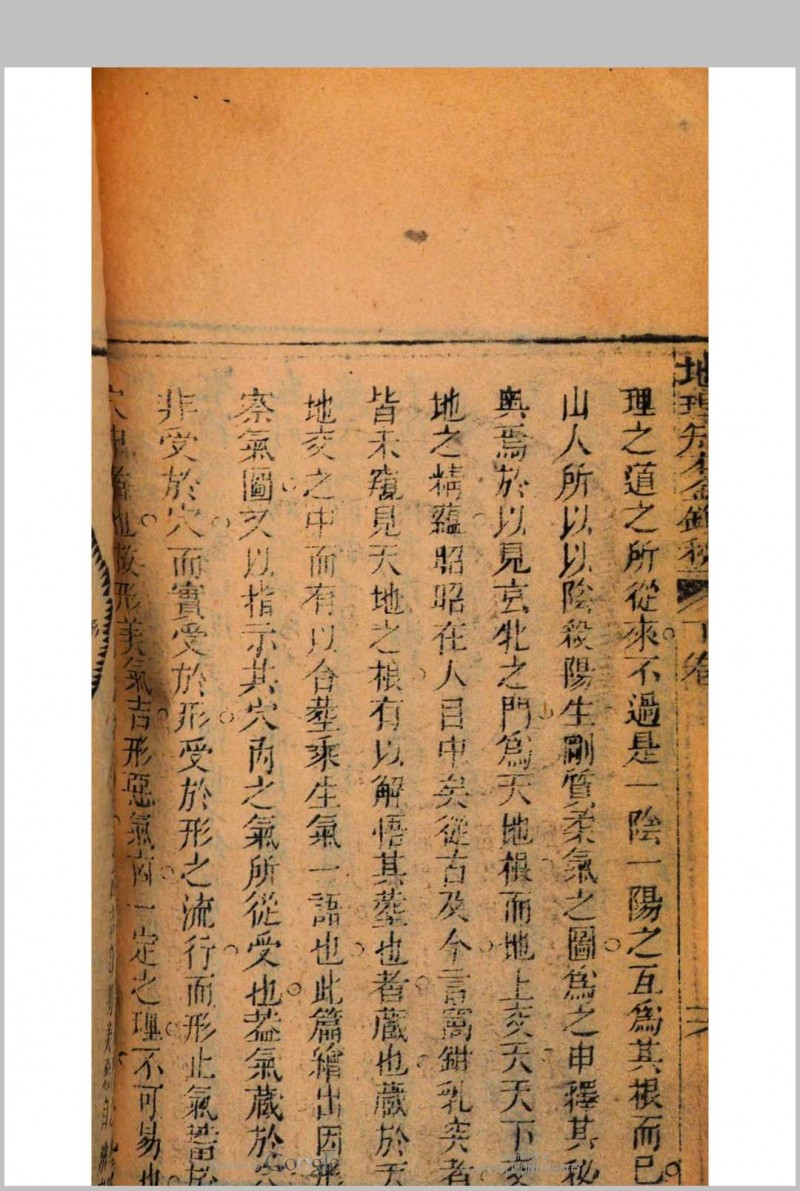 理之道之所從來不過是一陰一陽之互爲其根而已
山人所以以陰殺陽生剛質柔氣之圖爲之申釋其秘
奧焉於以見玄牝之門爲天地根而地上交天天下交
地之精蘊昭昭在人目中矣從古及今言窩鉗乳突者
皆未窺見天地之根有以解悟其塟也者藏也藏於天
地交之中而有以合塟乘生氣一語也此篇繪出因形
察氣圖又以指示其穴内之氣所從受也葢氣藏於穴
非受於穴而實受於形受於形之流行而形止氣蓄於
也故形美氣吉形惡氣凶一定之理不可易也
地理
下卷
Google